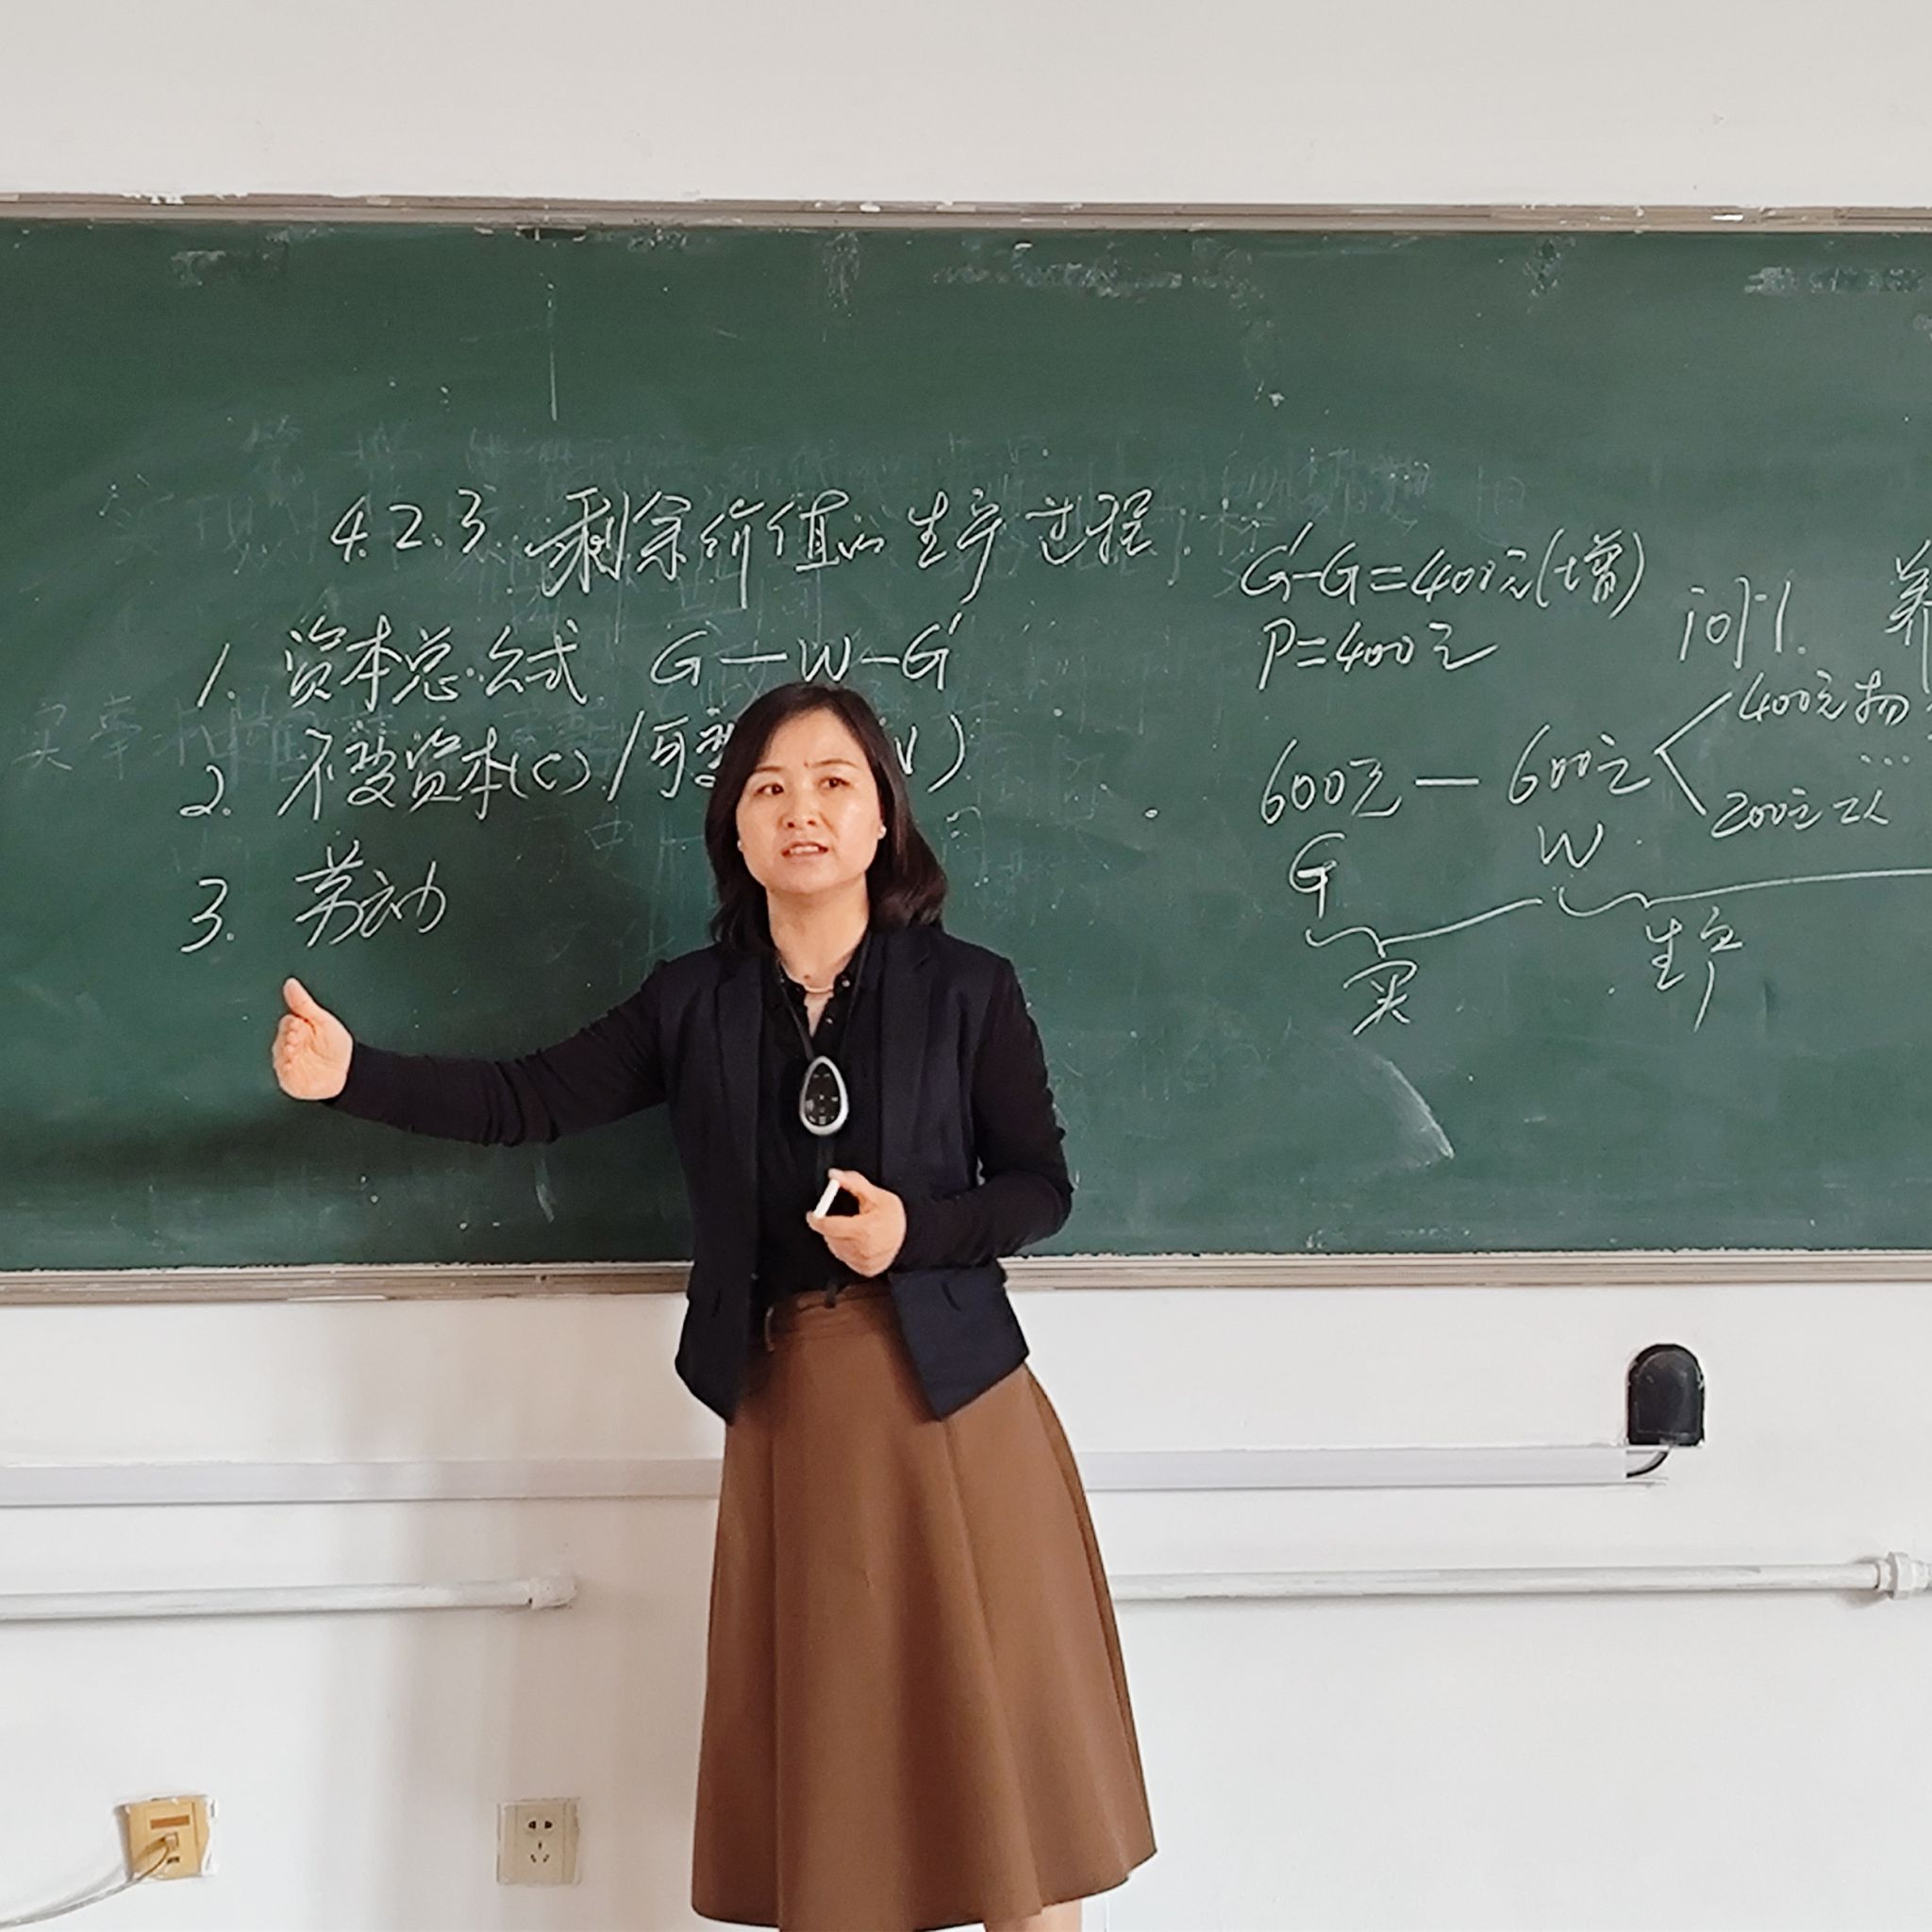 4.2.3 剩余价值的生产过程
1. 资本总公式 G—W—G'
2. 不变资本(C)/可变 V)
3. 劳动
G'-G=400元(增)
P=400元
问1. 养
600元—600元
400元物
...
200元工人
G W
买 生产